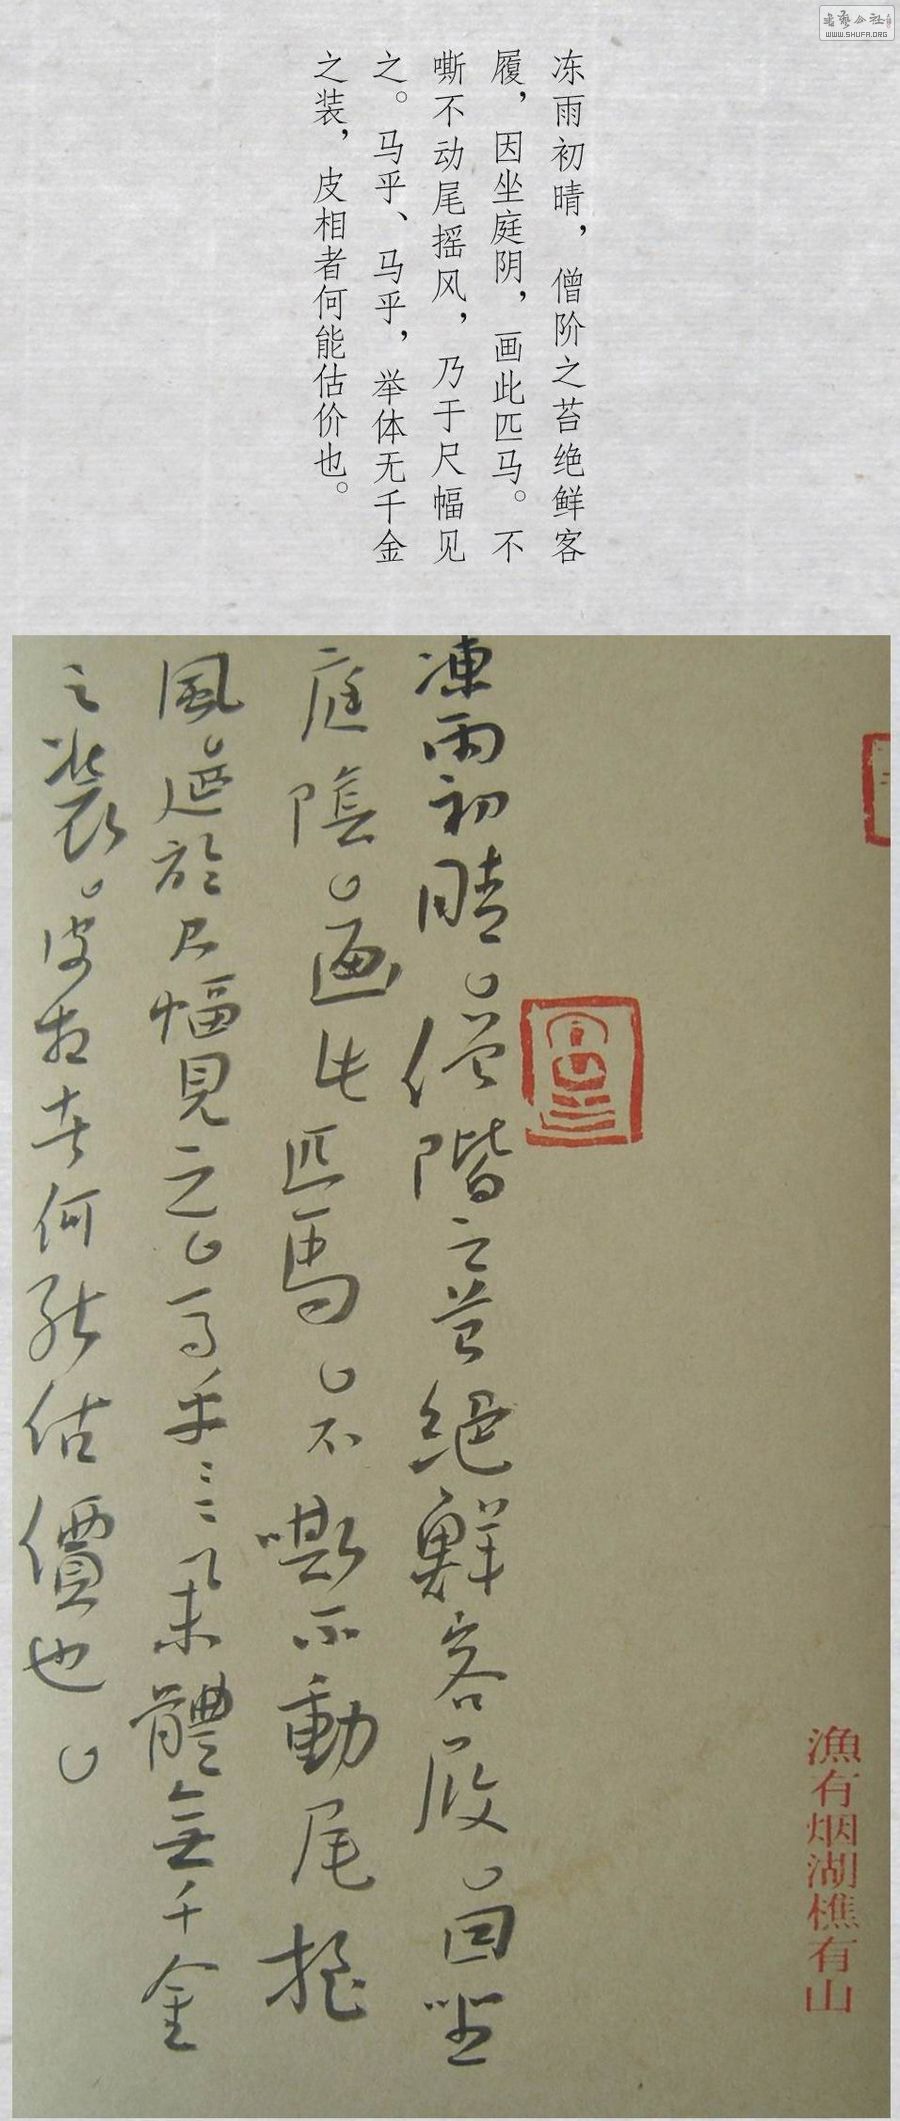 WWW.SHUFA.ORG
冻雨初晴，僧阶之苔绝鲜客
履，因坐庭阴，画此匹马。不
嘶不动尾摇风，乃于尺幅见
之。马乎、马乎，举体无千金
之装，皮相者何能估价也。
凍雨初晴。僧階之苔絕鮮客履。因坐
庭陰。画此匹馬。不嘶不動尾摇
風。迺於尺幅見之。马乎〻〻举體無千金
之裝。皮相者何能估價也。
漁有烟湖樵有山